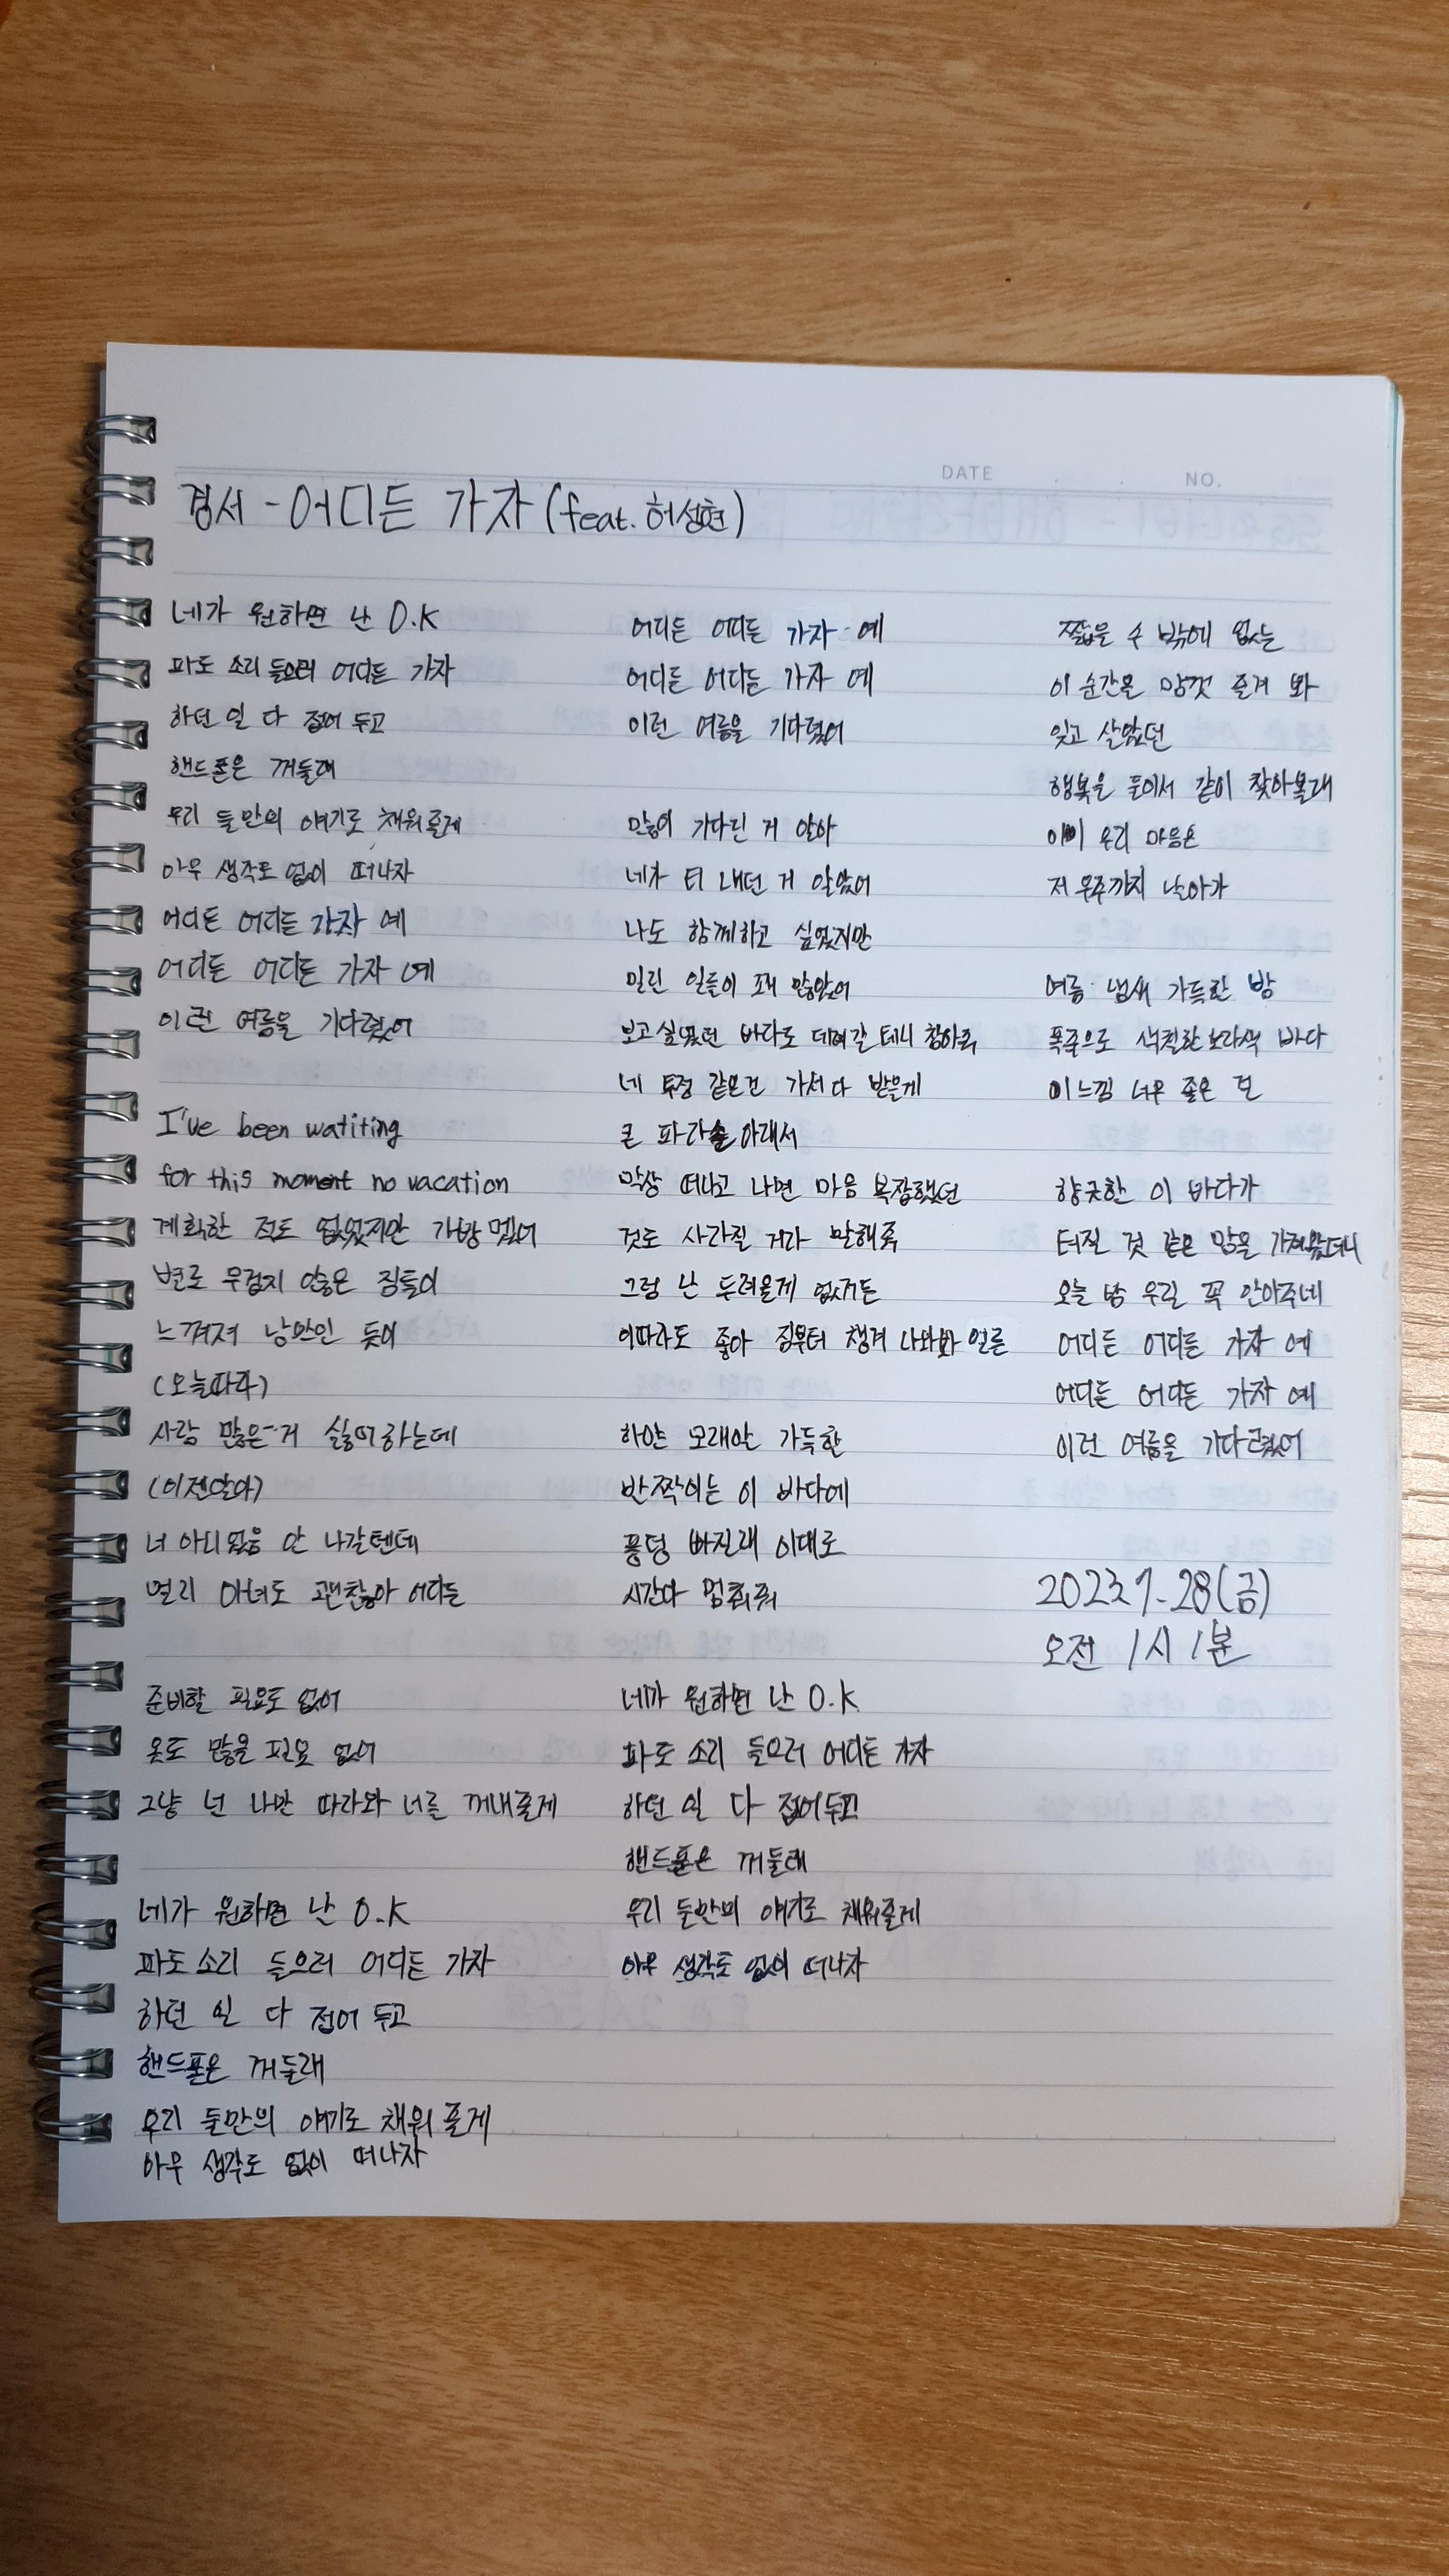 DATE . . NO.
경서 - 어디든 가자 (feat. 허성현)
네가 원하면 난 O.K
파도 소리 들으러 어디든 가자
하던 일 다 접어 두고
핸드폰은 꺼둘래
우리 둘만의 얘기로 채워줄게
아무 생각도 없이 떠나자
어디든 어디든 가자 예
어디든 어디든 가자 예
이런 여름을 기다렸어
I've been watiting
for this moment no vacation
계획한 적도 없었지만 가방 멨어
별로 무겁지 않은 짐들이
느껴져 낭만인 듯이
(오늘따라)
사람 많은 거 싫어하는데
(이젠알아)
너 아니었음 안 나갈텐데
멀리 아녀도 괜찮아 어디든
준비할 필요도 없어
옷도 많을 필요 없어
그냥 넌 나만 따라와 너를 꺼내줄게
네가 원하면 난 O.K
파도 소리 들으러 어디든 가자
하던 일 다 접어 두고
핸드폰은 꺼둘래
우리 둘만의 얘기로 채워 줄게
아무 생각도 없이 떠나자
어디든 어디든 가자 예
어디든 어디든 가자 예
이런 여름을 기다렸어
많이 기다린 거 알아
네가 티 내던 거 알았어
나도 함께하고 싶었지만
밀린 일들이 꽤 많았어
보고싶었던 바다도 데려갈 테니 참아줘
네 투정 같은건 가서 다 받을게
큰 파라솔 아래서
막상 떠나고 나면 마음 복잡했던
것도 사라질 거라 말해줘
그럼 난 두려울게 없거든
이따라도 좋아 짐부터 챙겨 나와봐 얼른
하얀 모래알 가득한
반짝이는 이 바다에
풍덩 빠질래 이대로
시간아 멈춰줘
네가 원하면 난 O.K
파도 소리 들으러 어디든 가자
하던 일 다 접어두고
핸드폰은 꺼둘래
우리 둘만의 얘기로 채워줄게
아무 생각도 없이 떠나자
짧을 수 밖에 없는
이 순간을 맘껏 즐겨 봐
잊고 살았던
행복을 둘이서 같이 찾아볼래
이미 우리 마음은
저 우주까지 날아가
여름 냄새 가득한 밤
폭죽으로 색칠한 보라색 바다
이 느낌 너무 좋은 걸
향긋한 이 바다가
터질 것 같은 맘을 가져왔더니
오늘 밤 우릴 꼭 안아주네
어디든 어디든 가자 예
어디든 어디든 가자 예
이런 여름을 기다렸어
2023.7.28(금)
오전 1시 1분